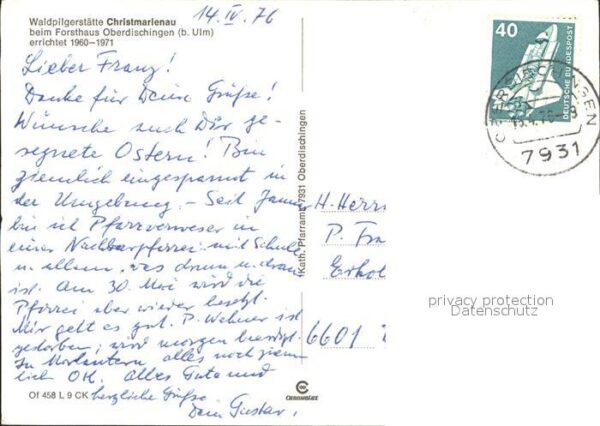 Waldpilgerstätte Christmarienau
beim Forsthaus Oberdischingen (b. Ulm)
errichtet 1960–1971
14. IV. 76
Lieber Franz!
Danke für Deine Grüße!
Wünsche auch Dir ge-
segnete Ostern! Bin
ziemlich eingespannt in
der Umgebung. – Seit Januar
bin ich Pfarrverweser in
einer Nachbarpfarrei mit Schule
u. allem, was drum u. dran
ist. Am 30. Mai wird die
Pfarrei aber wieder besetzt.
Mir geht es gut. P. Wehner ist
gestorben; wird morgen beerdigt.
In alles noch ziem
lich OK. Alles Gute und
herzliche Grüße
Dein Gustav!
Of 458 L 9 CK
(Kath. Pfarramt 7931 Oberdischingen)
CEKADEWE
40
DEUTSCHE BUNDESPOST
7931
H. Herrn
P. Fra
Erhol
6601
privacy protection
Datenschutz